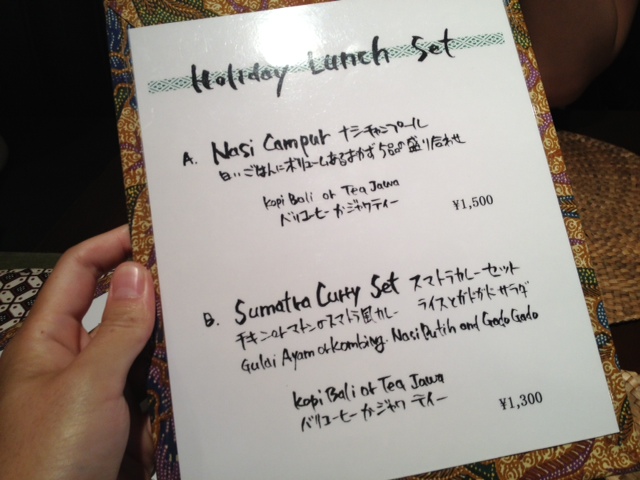 Holiday Lunch Set
A. Nasi Campur ナシチャンプール
白いごはんにボリュームあるおかず5品の盛り合わせ
Kopi Bali or Tea Jawa
バリコーヒーかジャワティー
¥1,500
B. Sumatra Curry Set スマトラカレーセット
チキンorマトンのスマトラ風カレー ライスとガドガドサラダ
Gulai Ayam or Kambing. Nasi Putih and Gado Gado
Kopi Bali or Tea Jawa
バリコーヒーかジャワティー
¥1,300